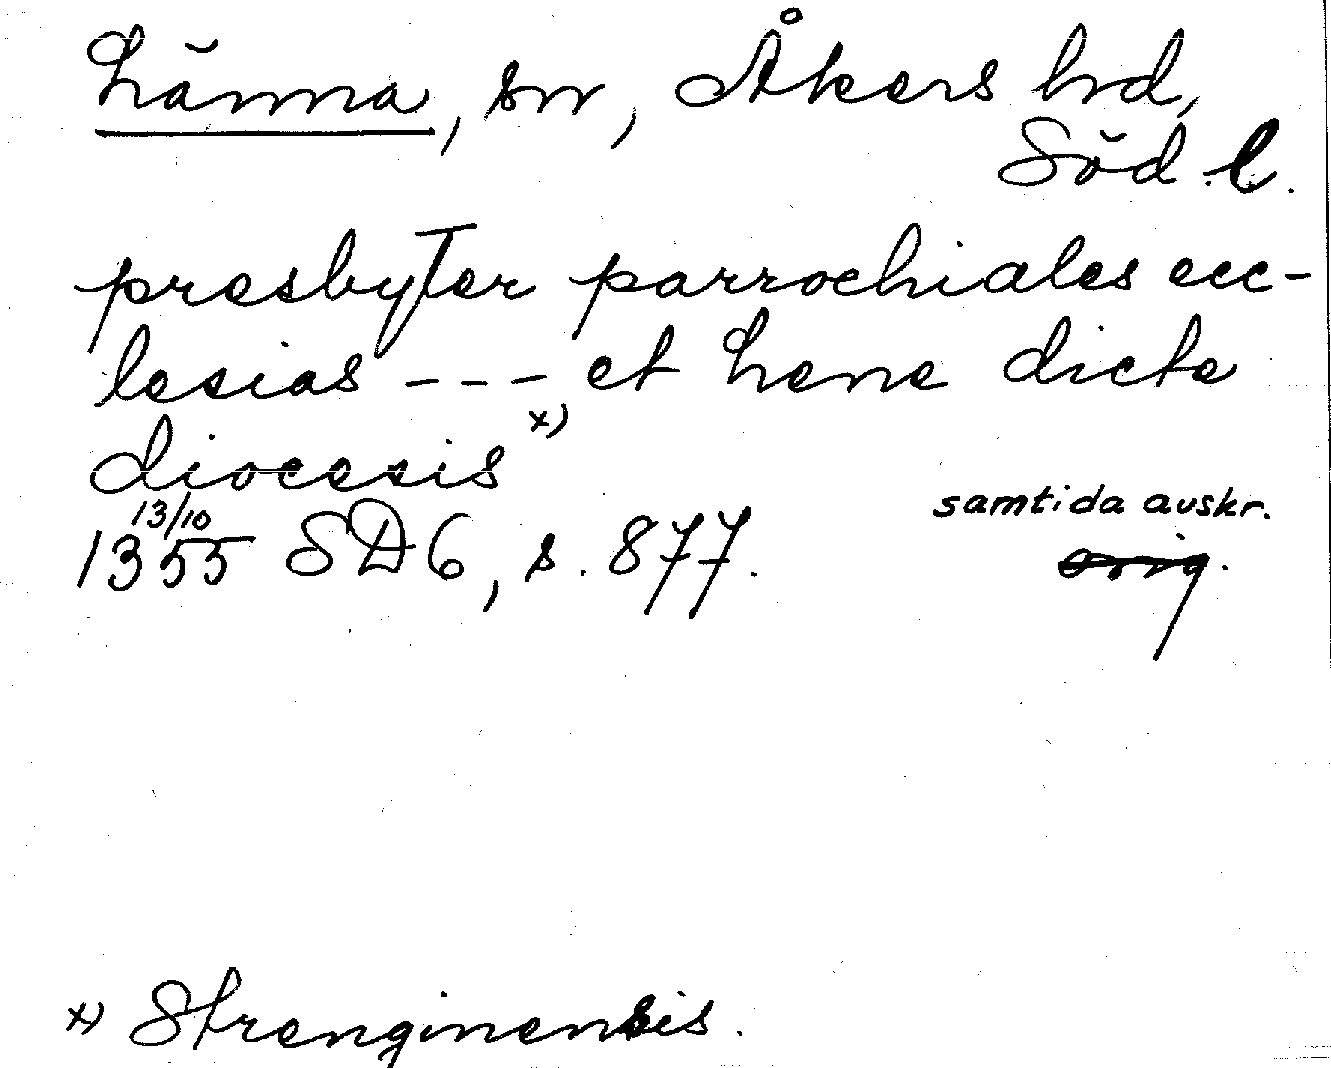 Länna, sn, Åkers hd,
Söd.l.
presbyter parrochiales ecc-
lesias --- et Lene dicte
diocesis x)
13/10
1355 SD6, s. 877.
samtida avskr.
orig.
x) Strenginensis.